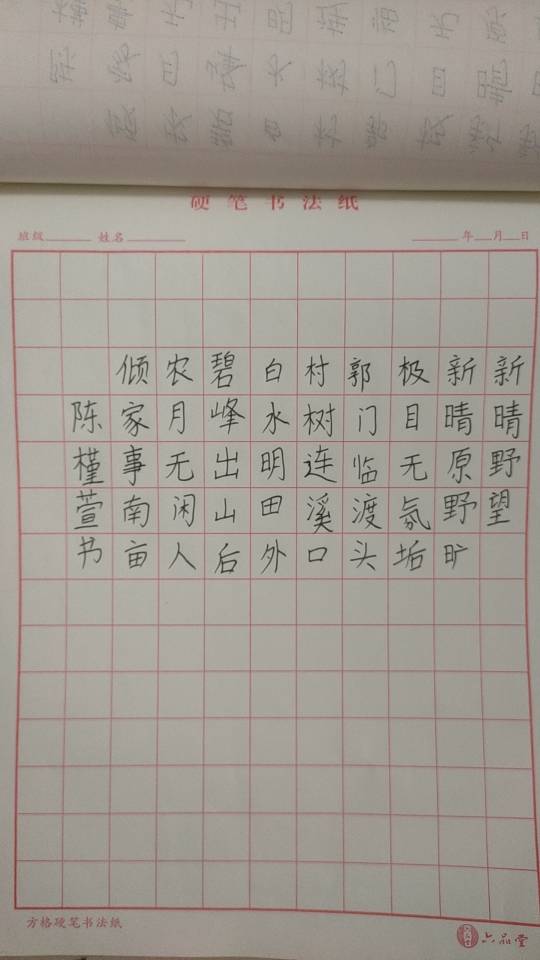 硬笔书法纸
班级 姓名 年 月 日
新晴野望
新晴原野旷
极目无氛垢
郭门临渡头
村树连溪口
白水明田外
碧峰出山后
农月无闲人
倾家事南亩
陈槿萱书
方格硬笔书法纸
六品堂